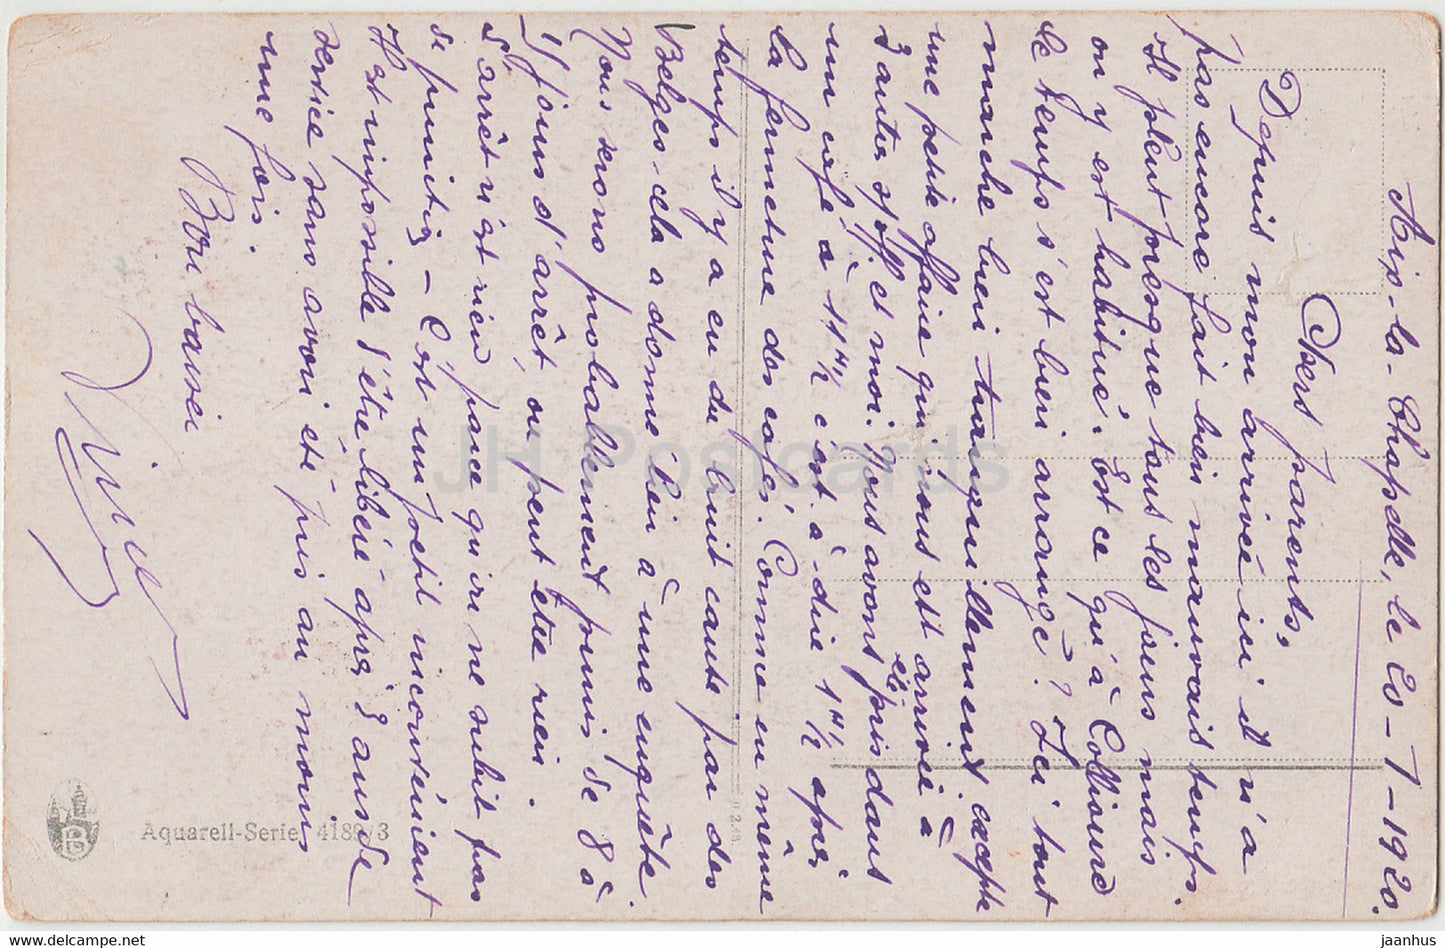 Aix-la-Chapelle, le 20-1-1920.
Chers parents,
Depuis mon arrivée ici il n'a
pas encore fait bien mauvais temps.
Il pleut presque tous les jours mais
on y est habitué. Est ce qu'à Collioure
le temps s'est bien arrangé? Ici tout
marche bien tranquillement excepté
une petite affaire qui nous est arrivée à
3 autres s/off et moi. Nous avons été pris dans
un café à 11 H ½ c'est à-dire 1 H ½ après
la fermeture des cafés. Comme en même
temps il y a eu du bruit causé par des
Belges-cela a donné lieu à une enquête.
Nous serons probablement punis de 8 à
15 jours d'arrêt, ou peut être rien.
L'arrêt n'est rien parce qu'on ne subit pas
de punition - C'est un petit inconvénient
Il est impossible d'être libéré après 3 ans de
service sans avoir été pris au moins
une fois.
Bon baiser
Aquarell-Serie 4180/3
JH Postcards
jaanhus